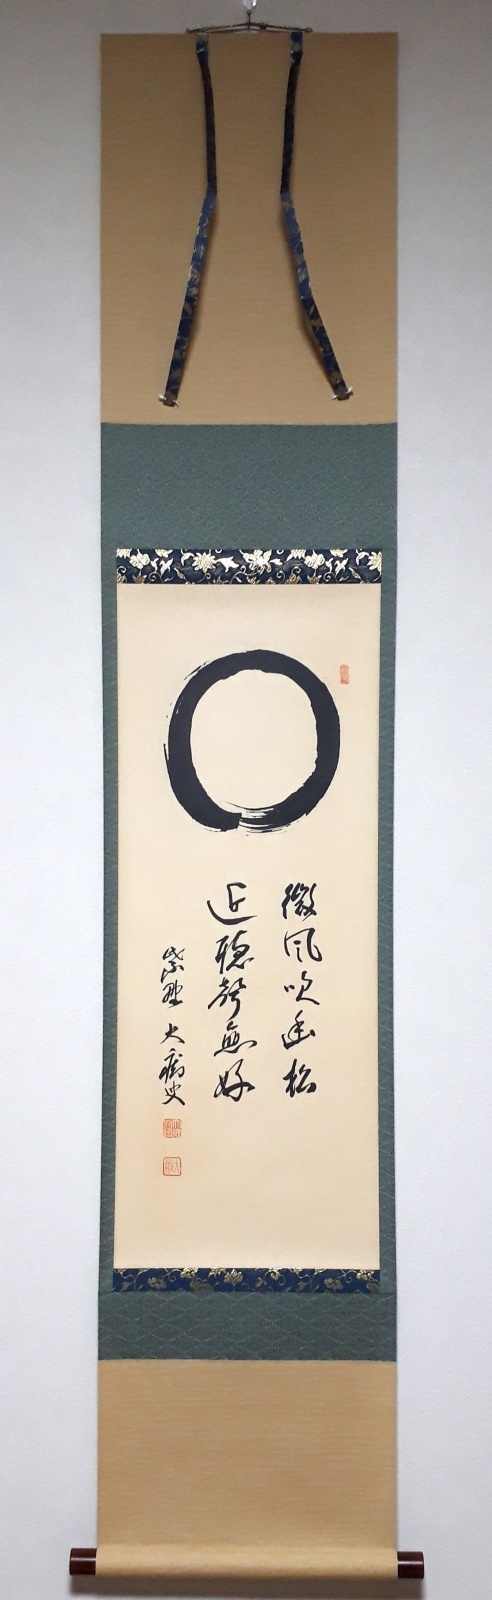 微風吹幽松
近聴声愈好
紫野 大